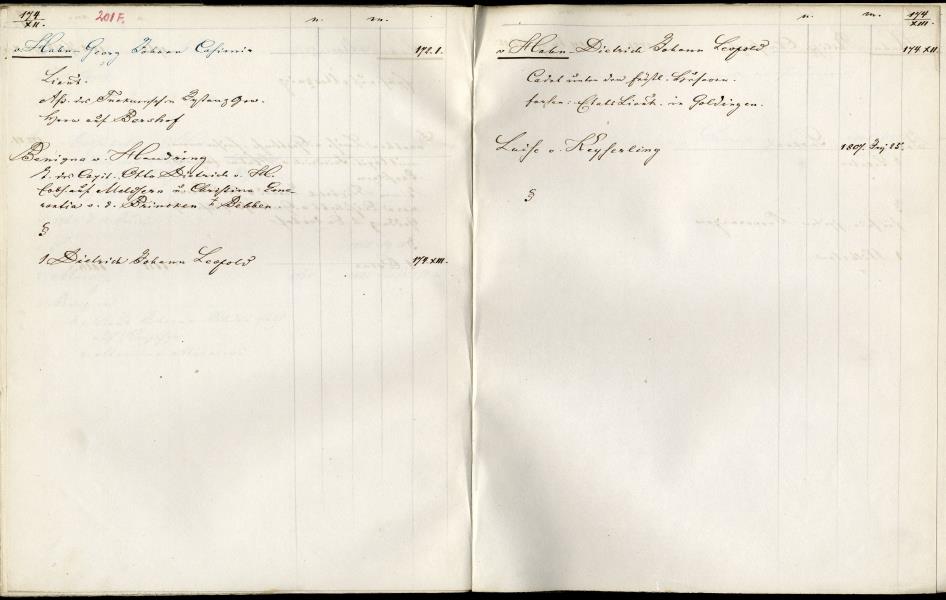 174
XII.
201 F.
n. m.
v. Hahn Georg Johann Casimir 172.1.
Lieut.
Ass. des Tuckumschen
Herr auf Borshof
Benigna v. Haudring
T. des Capit. Otto Dietrich v. H.
auf u. Christina
v. d. Brincken
§
1 Dietrich Johann Leopold 174.XIII.
n. m. 174
XIII.
v. Hahn Dietrich Johann Leopold 174.XII
Cadet unter den fürstl.
Etats Lieut. in Goldingen.
Luise v. Keyserling 1807. 25.
§